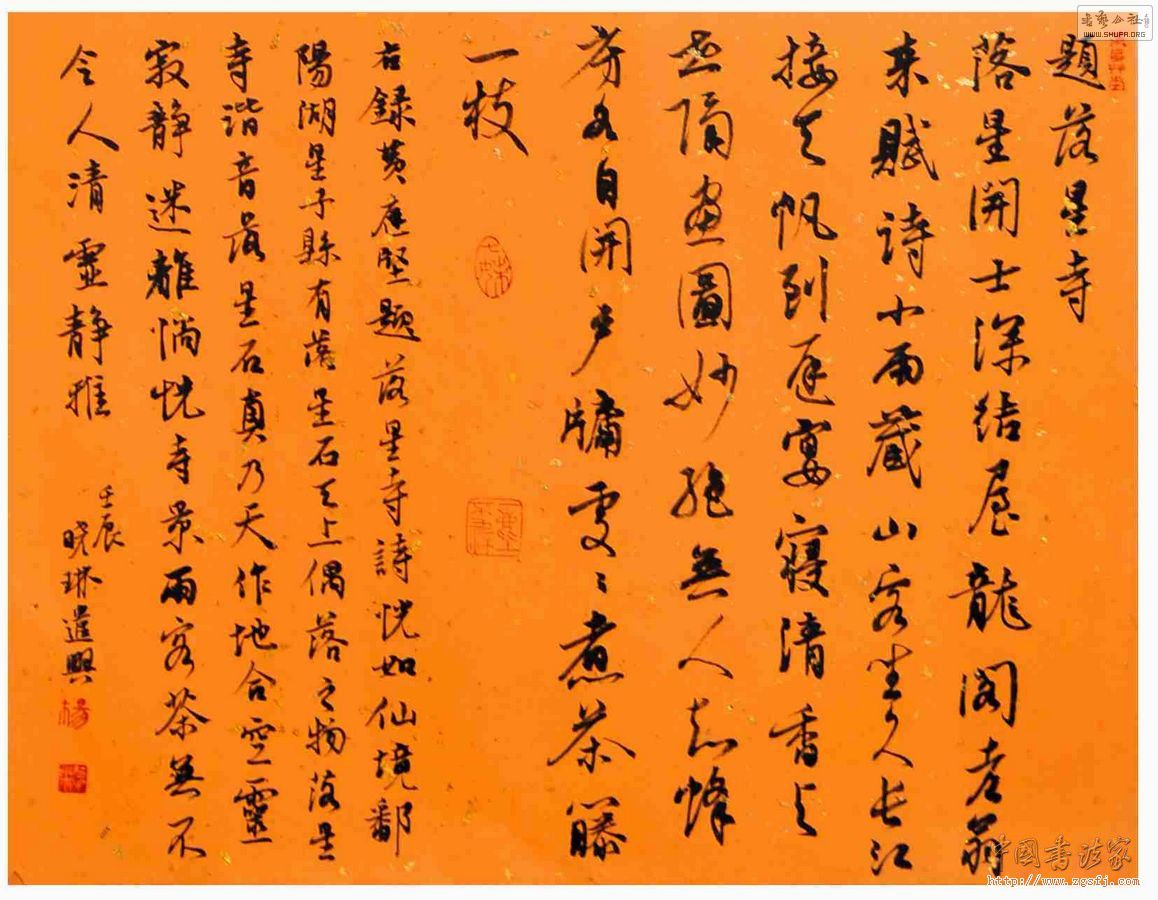 題落星寺
落星開士深結屋龍閣老翁
来賦詩小雨藏山客坐久長江
接天帆到遲宴寢清香与
世隔畫圖妙絕無人知蜂
房各自開戶牖處々煮茶籐
一枝
右録黄庭堅題落星寺詩恍如仙境鄱
陽湖星子縣有落星石天上偶落之物落星
寺諧音落星石真乃天作地合空靈
寂静迷離惝恍寺景雨客茶無不
令人清靈静雅
壬辰
晓琳遣興
楊
書藝公社
WWW.SHUFA.ORG
中国书法家
http://www.zgsfj.com